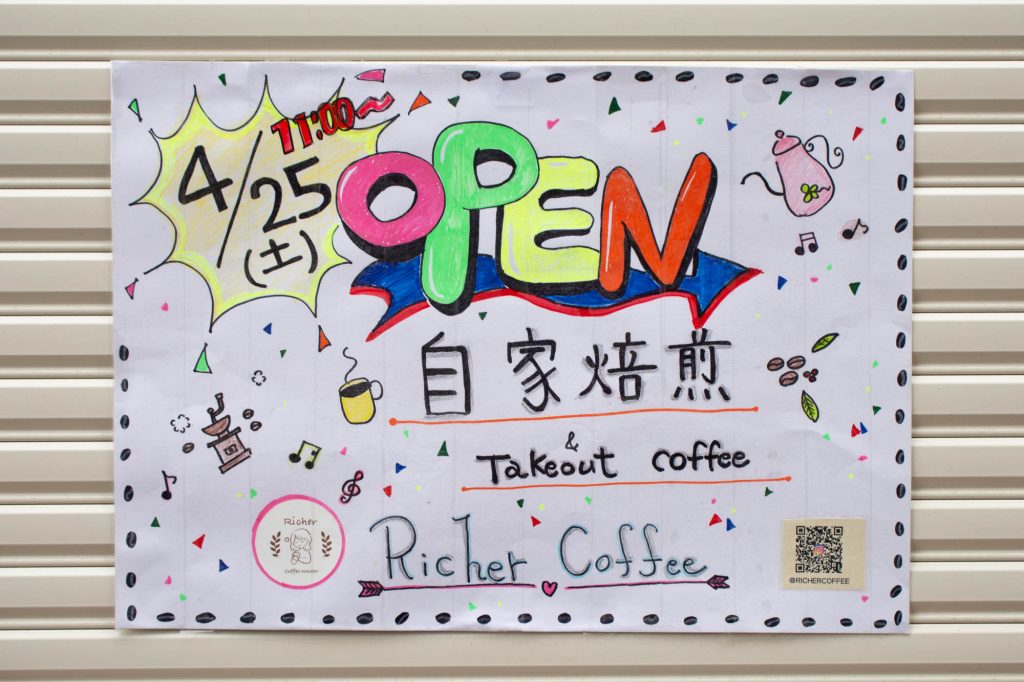 11:00~
4/25
(土)
OPEN
自家焙煎
&
Takeout coffee
Richer Coffee
Richer
Coffee roaster
@RICHERCOFFEE